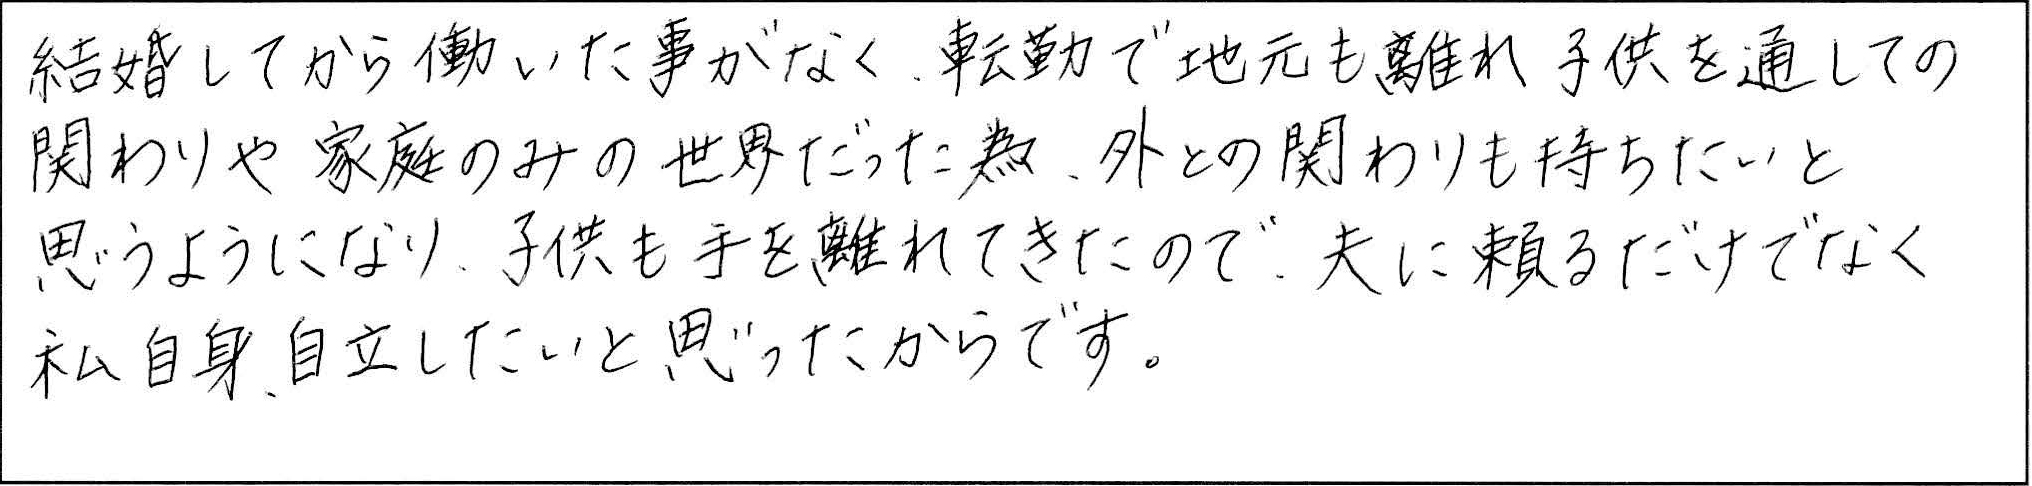 結婚してから働いた事がなく、転勤で地元も離れ子供を通しての
関わりや家庭のみの世界だった為、外との関わりも持ちたいと
思うようになり、子供も手を離れてきたので、夫に頼るだけでなく
私自身、自立したいと思ったからです。